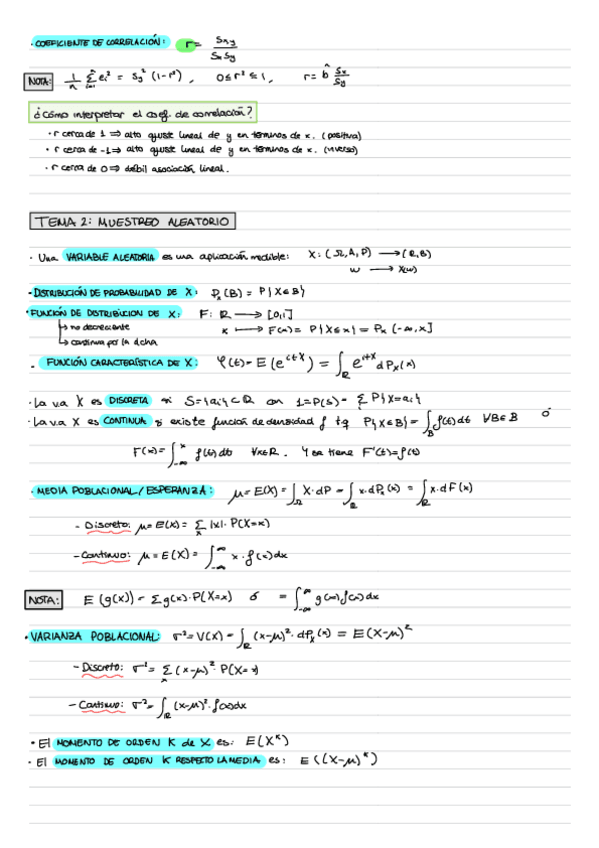 · COEFICIENTE DE CORRELACIÓN: r = Sxy / SxSy
NOTA: 1/n Σ(i=1 a n) ei² = Sy² (1-r²) , 0 ≤ r² ≤ 1 , r = b̂ Sx/Sy
¿Cómo interpretar el coef. de correlación?
· r cerca de 1 ⟹ alto ajuste lineal de y en términos de x. (positiva)
· r cerca de -1 ⟹ alto ajuste lineal de y en términos de x. (inverso)
· r cerca de 0 ⟹ débil asociación lineal.
TEMA 2: MUESTREO ALEATORIO
· Una VARIABLE ALEATORIA es una aplicación medible: X: (Ω,A,P) ⟶ (R,B)
w ⟶ X(w)
· DISTRIBUCIÓN DE PROBABILIDAD DE X: Px(B) = P{X∈B}
· FUNCIÓN DE DISTRIBUCIÓN DE X: F: R ⟶ [0,1]
↳ no decreciente x ⟶ F(x) = P{X≤x} = Px(-∞,x]
↳ continua por la dcha
· FUNCIÓN CARACTERÍSTICA DE X: φ(t) = E(e^{itX}) = ∫_R e^{itx} dPx(x)
· La v.a X es DISCRETA si S={ai}⊂R con 1=P(S)= Σ P{X=ai}
· La v.a X es CONTINUA si existe función de densidad f tq P{X∈B} = ∫_B f(t)dt ∀B∈B ó
F(x) = ∫_{-∞}^{x} f(t)dt ∀x∈R. Y se tiene F'(t)=f(t)
· MEDIA POBLACIONAL/ESPERANZA: μ=E(X)=∫_Ω X·dP = ∫_R x·dPx(x) = ∫_R x·dF(x)
- Discreto: μ=E(X)= Σ_x |x|· P(X=x)
- Continuo: μ=E(X) = ∫_{-∞}^{∞} x·f(x)dx
NOTA: E(g(x)) = Σg(x)·P(X=x) ó = ∫_{-∞}^{∞} g(x)f(x)dx
· VARIANZA POBLACIONAL: σ²=V(X)=∫_R (x-μ)²·dPx(x) = E(X-μ)²
- Discreto: σ² = Σ_x (x-μ)²·P(X=x)
- Continuo: σ² = ∫_R (x-μ)²·f(x)dx
· El MOMENTO DE ORDEN K de X es: E(X^K)
· El MOMENTO DE ORDEN K RESPECTO LA MEDIA es: E((X-μ)^K)